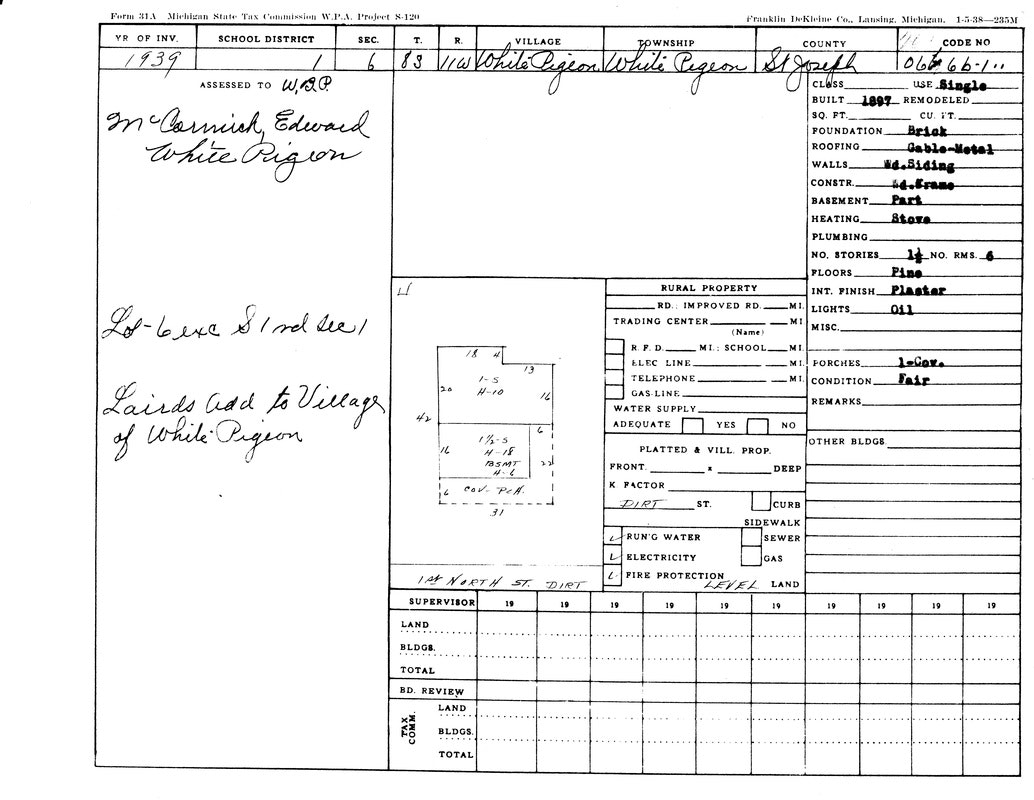 Form 31A Michigan State Tax Commission W.P.A. Project S-120
Franklin DeKleine Co., Lansing, Michigan. 1-5-38—235M
YR OF INV. SCHOOL DISTRICT SEC. T. R. VILLAGE TOWNSHIP COUNTY CODE NO
1939 1 6 8S 11W White Pigeon White Pigeon St Joseph 066 6b-1"
ASSESSED TO W.B.P.
McCormick, Edward
White Pigeon
Lot-6 exc S 1 rd Sec 1
Lairds Add to Village
of White Pigeon
CLASS USE Single
BUILT 1897 REMODELED
SQ. FT. CU. FT.
FOUNDATION Brick
ROOFING Gable-Metal
WALLS Wd.Siding
CONSTR. Wd.Frame
BASEMENT Part
HEATING Stove
PLUMBING
NO. STORIES 1½ NO. RMS. 6
FLOORS Pine
INT. FINISH Plaster
LIGHTS Oil
MISC.
PORCHES 1-Cov.
CONDITION Fair
REMARKS
OTHER BLDGS.
18 4
13
1-S
H-10
20
16
42
6
1½-S
H-18
BSMT
H-6
16
22
6 COV-PCH.
31
1st NORTH ST. DIRT
RURAL PROPERTY
RD.: IMPROVED RD. MI.
TRADING CENTER MI.
(Name)
R. F. D. MI.: SCHOOL MI.
ELEC LINE MI.
TELEPHONE MI.
GAS-LINE
WATER SUPPLY
ADEQUATE YES NO
PLATTED & VILL. PROP.
FRONT. x DEEP
K FACTOR
DIRT ST. CURB
SIDEWALK
RUN'G WATER SEWER
ELECTRICITY GAS
FIRE PROTECTION
LEVEL LAND
SUPERVISOR 19 19 19 19 19 19 19 19 19 19
LAND
BLDGS.
TOTAL
BD. REVIEW
TAX COMM.
LAND
BLDGS.
TOTAL